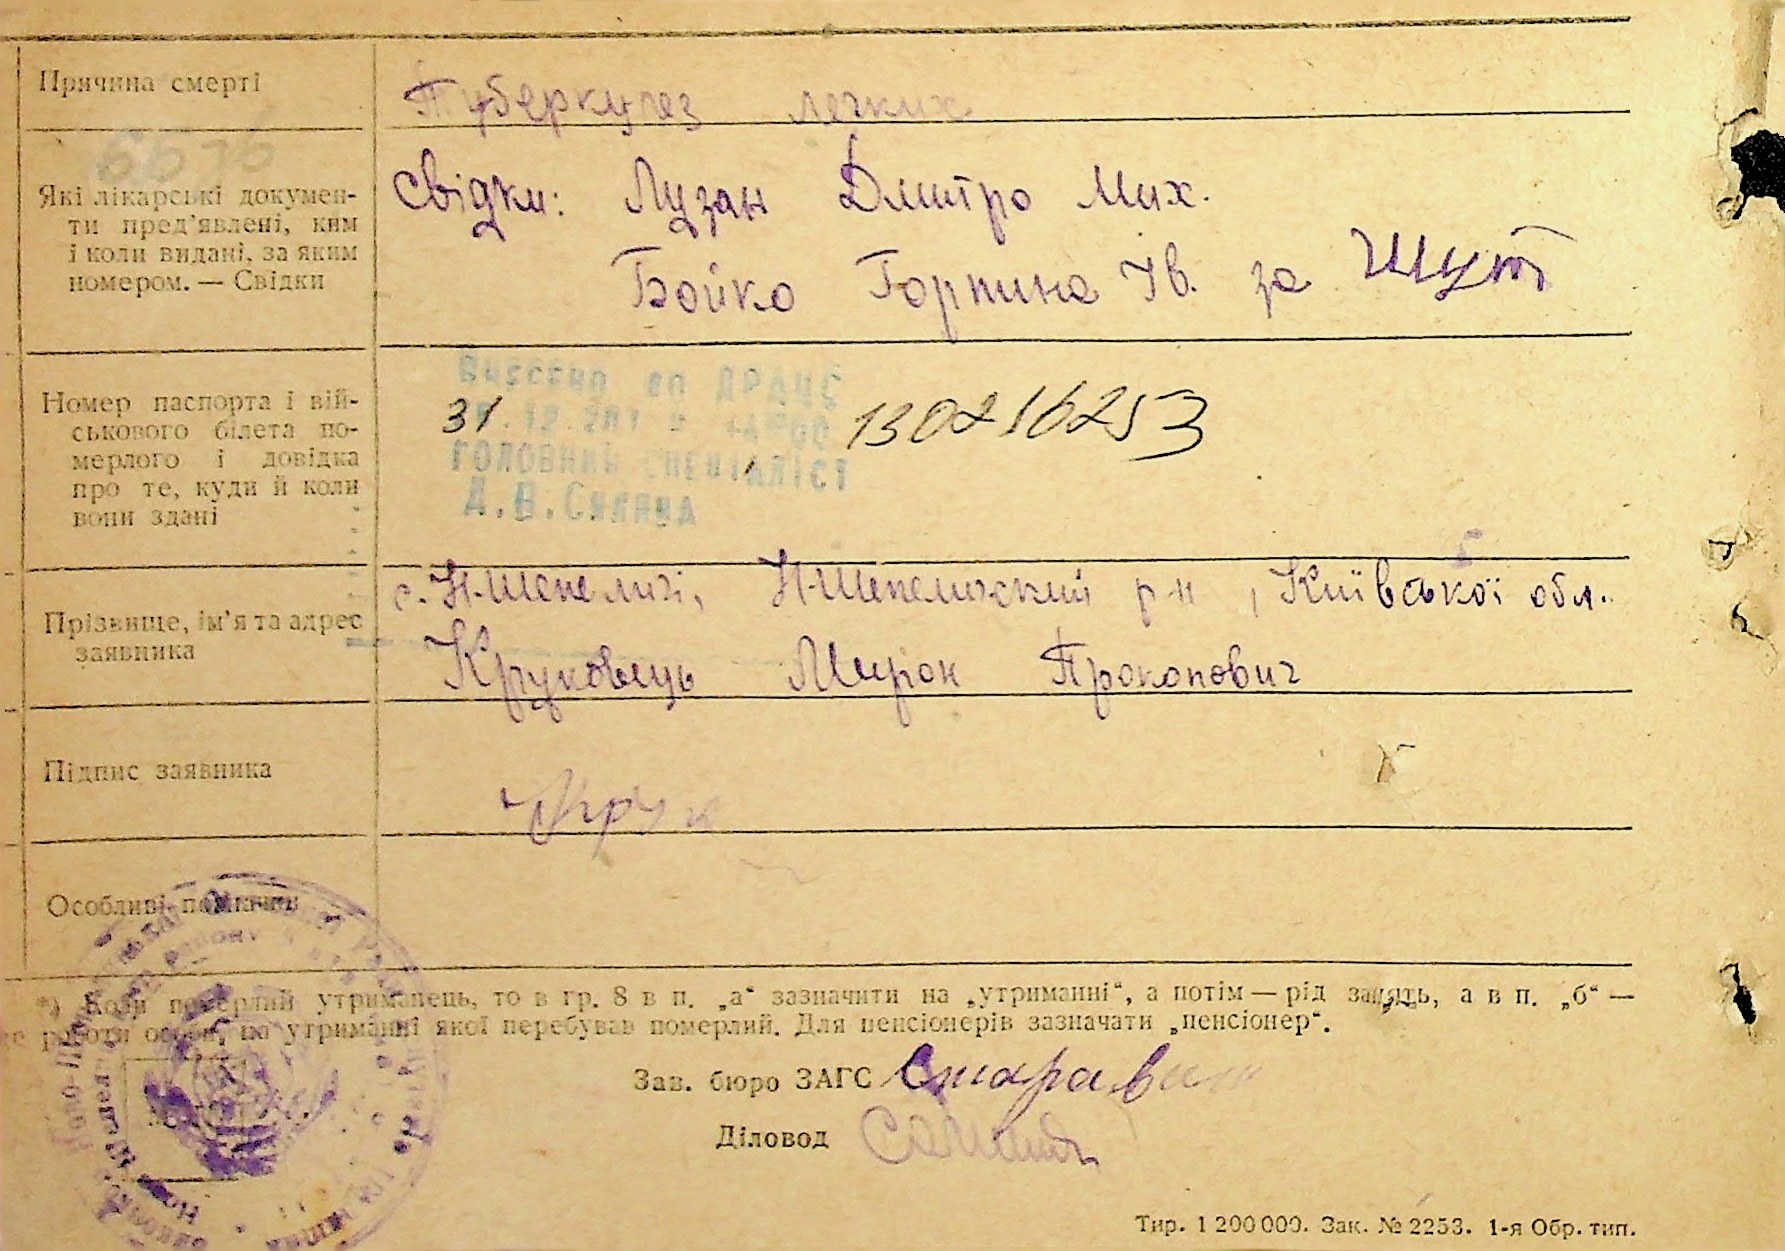 Причина смерті
Туберкулез легких
Які лікарські докумен-
ти пред'явлені, ким
і коли видані, за яким
номером. — Свідки
Свідки: Лузан Дмитро Мих.
Бойко Горпина Ів. за
Номер паспорта і вій-
ськового білета по-
мерлого і довідка
про те, куди й коли
вони здані
Внесено до ДРАЦС
31.12.201
130216253
ГОЛОВНИЙ СПЕЦІАЛІСТ
Прізвище, ім'я та адрес
заявника
с. Н-Шепеличі, Н-Шепелический р-н, Київської обл.
Круковець Мирон Прокопович
Підпис заявника
Крук
Особливі помітки
*) Коли померлий утриманець, то в гр. 8 в п. „а“ зазначити на „утриманні“, а потім — рід занять, а в п. „б“ —
роботи особи, на утриманні якої перебував померлий. Для пенсіонерів зазначати „пенсіонер“.
Зав. бюро ЗАГС
Діловод
Тир. 1 200 000. Зак. № 2253. 1-я Обр. тип.